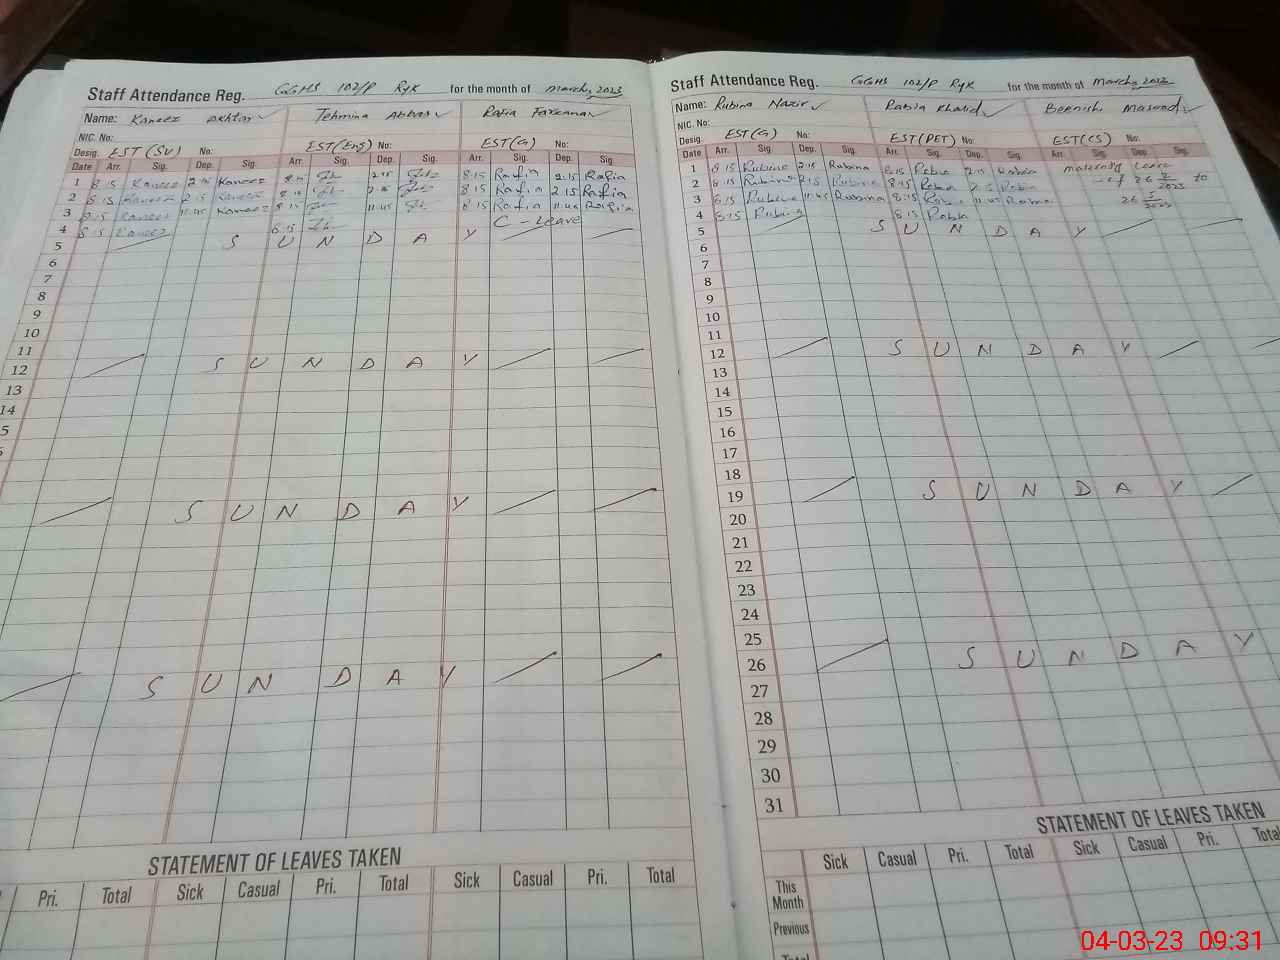 Staff Attendance Reg. GGHS 102/P Ryk for the month of march, 2023
Name: Kaneez Akhtar Tehmina Abbas Rafia Farzana
NIC. No:
Desig. EST (SV) No: EST (Eng) No: EST (G) No:
Date Arr. Sig. Dep. Sig. Arr. Sig. Dep. Sig. Arr. Sig. Dep. Sig.
1 8:15 Kaneez 2:15 Kaneez 8:15 2:15 8:15 Rafia 2:15 Rafia
2 8:15 Kaneez 2:15 Kaneez 8:15 2:15 8:15 Rafia 2:15 Rafia
3 8:15 Kaneez 11:45 Kaneez 8:15 11:45 8:15 Rafia 11:45 Rafia
4 8:15 Kaneez 8:15 C - Leave
5 S U N D A Y
6
7
8
9
10
11
12 S U N D A Y
13
14
5
S U N D A Y
S U N D A Y
STATEMENT OF LEAVES TAKEN
Pri. Total Sick Casual Pri. Total Sick Casual Pri. Total
Staff Attendance Reg. GGHS 102/P Ryk for the month of march, 2023
Name: Rubina Nazir Rabia Khalid Beenish Masood
NIC. No:
Desig. EST (G) No: EST (PET) No: EST (CS) No:
Date Arr. Sig Dep. Sig. Arr. Sig. Dep. Sig. Arr. Sig. Dep. Sig.
1 8:15 Rubina 2:15 Rubina 8:15 Rabia 2:15 Rabia maternity Leave
2 8:15 Rubina 2:15 Rubina 8:15 Rabia 2:15 Rabia 26 2/2023 to
3 8:15 Rubina 11:45 Rubina 8:15 Rabia 11:45 Rabia 26
4 8:15 Rubina 8:15 Rabia
5 S U N D A Y
6
7
8
9
10
11
12 S U N D A Y
13
14
15
16
17
18
19 S U N D A Y
20
21
22
23
24
25
26 S U N D A Y
27
28
29
30
31
STATEMENT OF LEAVES TAKEN
Sick Casual Pri. Total Sick Casual Pri. Total
This Month
Previous
Total
04-03-23 09:31